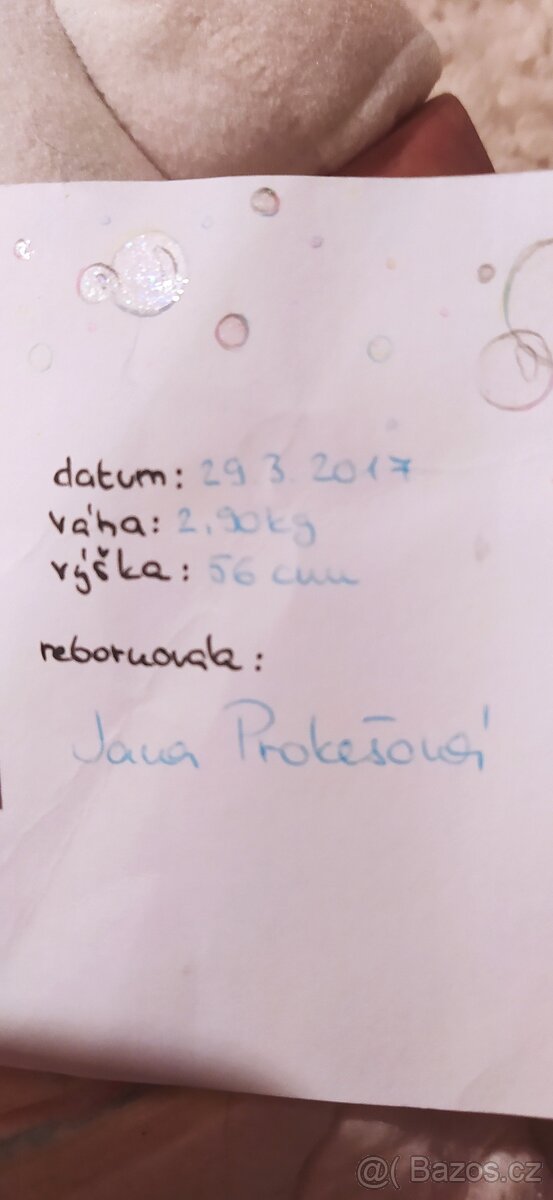 datum: 29.3.2017
váha: 2,90kg
výška: 56 cm
rebornovala:
Jana Prokešová
@( Bazos.cz